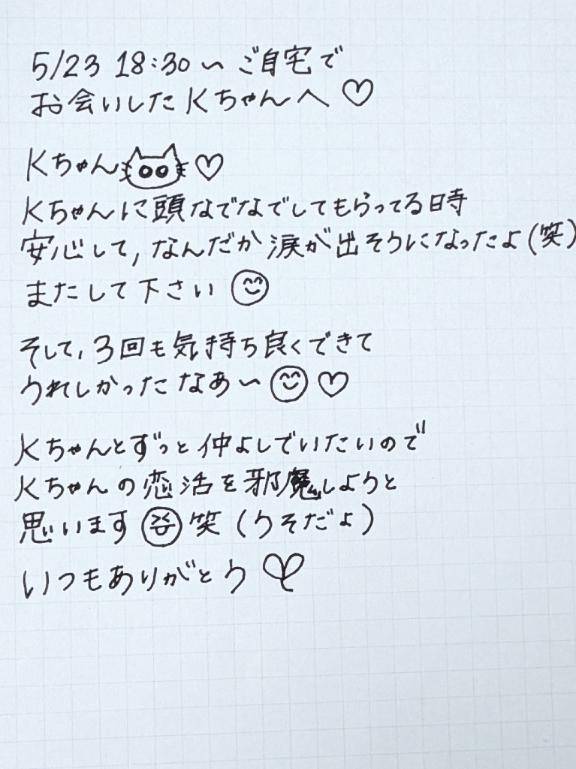 5/23 18:30〜ご自宅で
お会いしたKちゃんへ♡
Kちゃん♡
Kちゃんに頭なでなでしてもらってる時
安心して,なんだか涙が出そうになったよ(笑)
またして下さい
そして,3回も気持ち良くできて
うれしかったなあ〜♡
Kちゃんとずっと仲よしでいたいので
Kちゃんの恋活を邪魔しようと
思います笑(うそだよ)
いつもありがとう♡